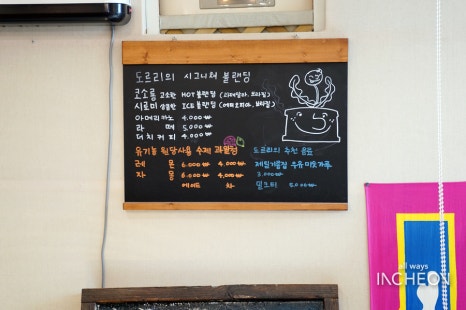 도르리의 시그니쳐 블랜딩
코소롱 고소한 HOT블랜딩 (과테말라, 브라질)
시로미 상큼한 ICE블랜딩 (에티오피아, 브라질)
아메리카노 4.000₩
라 떼 5.000₩
더치커피 4.000₩
유기농 원당사용 수제 과일청
레 몬 6.000₩ 4.000₩
자 몽 6.000₩ 4.000₩
에이드 차
도르리의 추천 음료
제철거를 우유 미숫가루
3.000₩
밀크티 5.000₩
all ways
INCHEON